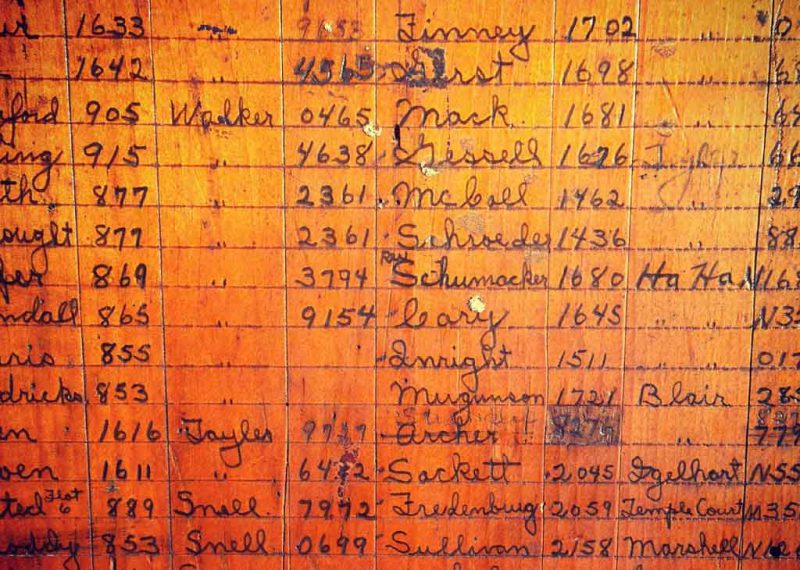 1633 " 9853 Finney 1702 "
1642 " 4565 Gerst 1698 "
ford 905 Walker 0465 Mack 1681
ing 915 " 4638 Gessell 1626
th 877 " 2361 McColl 1462
ought 877 " 2361 Schroeder 1436
fer 869 " 3794 Schumacker 1680 Ha Ha N168
ndall 865 " 9154 Cary 1645 " " N35
ris 855 " Inright 1511 " " 017
dricks 853 " Murgunson 1721 Blair 28
en 1616 Tayles Archer "
ven 1611 " 64 2 Sackett 2045 Igelhart N55
ted Flat 6 889 Snell 7972 Fredenburg 2059 Temper Court N35
oddy 853 Snell 0699 Sullivan 2158 Marshell